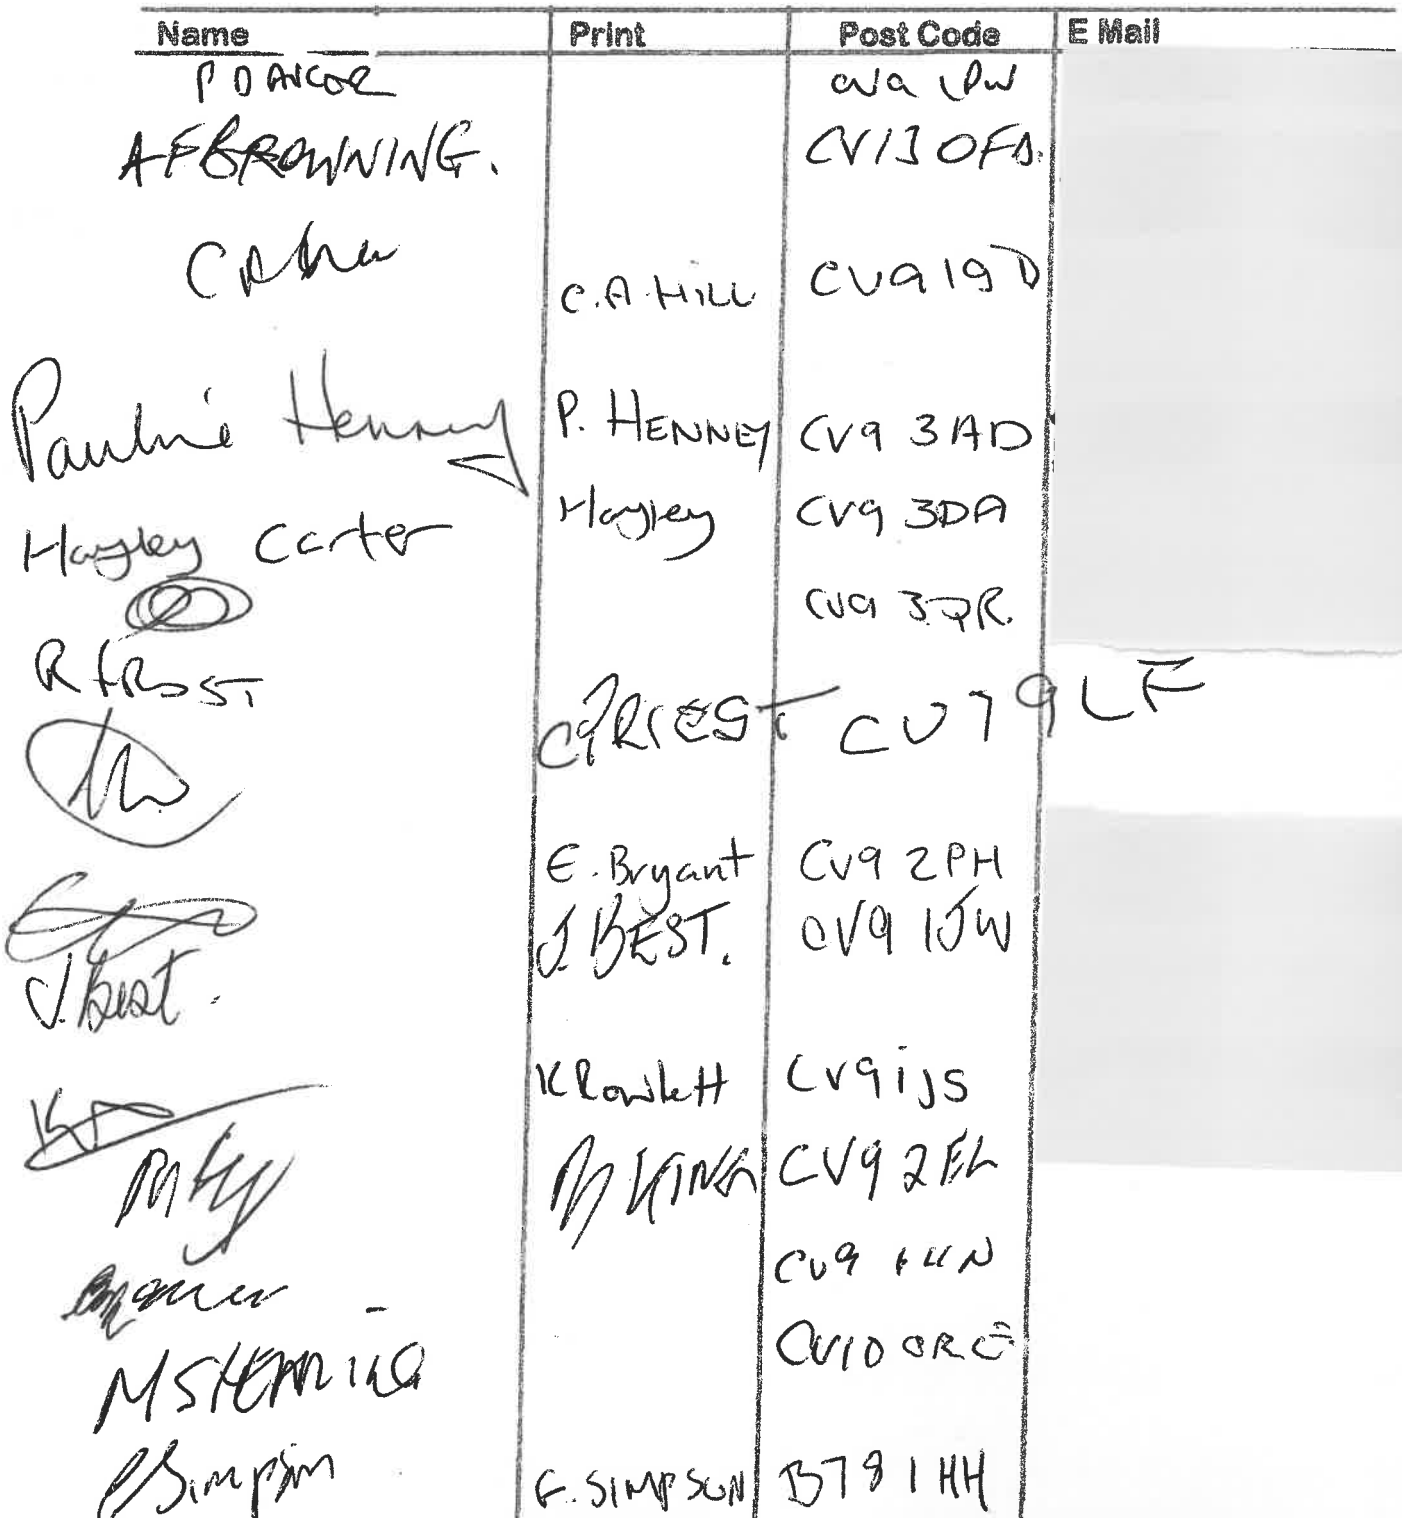 Name Print Post Code E Mail
P D
AFBROWNING. CV13 0FA.
C.A.HILL CV9 1
Pauline Henney P. HENNEY CV9 3AD
Hayley Carter Hayley CV9 3DA
R FROST CV9 3QR.
C PRIEST CV7 9LF
E. Bryant CV9 2PH
J. Best. J. BEST. CV9 1JW
K Rowlett CV9 1JS
M KING CV9 2EL
CV9
M CV10 0RE
P Simpson SIMPSON B78 1HH